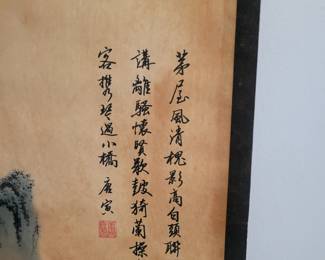 茅屋風清槐影高白頭聯
講離騷懷賢欲鼓猗蘭操
客攜琴過小橋 唐寅